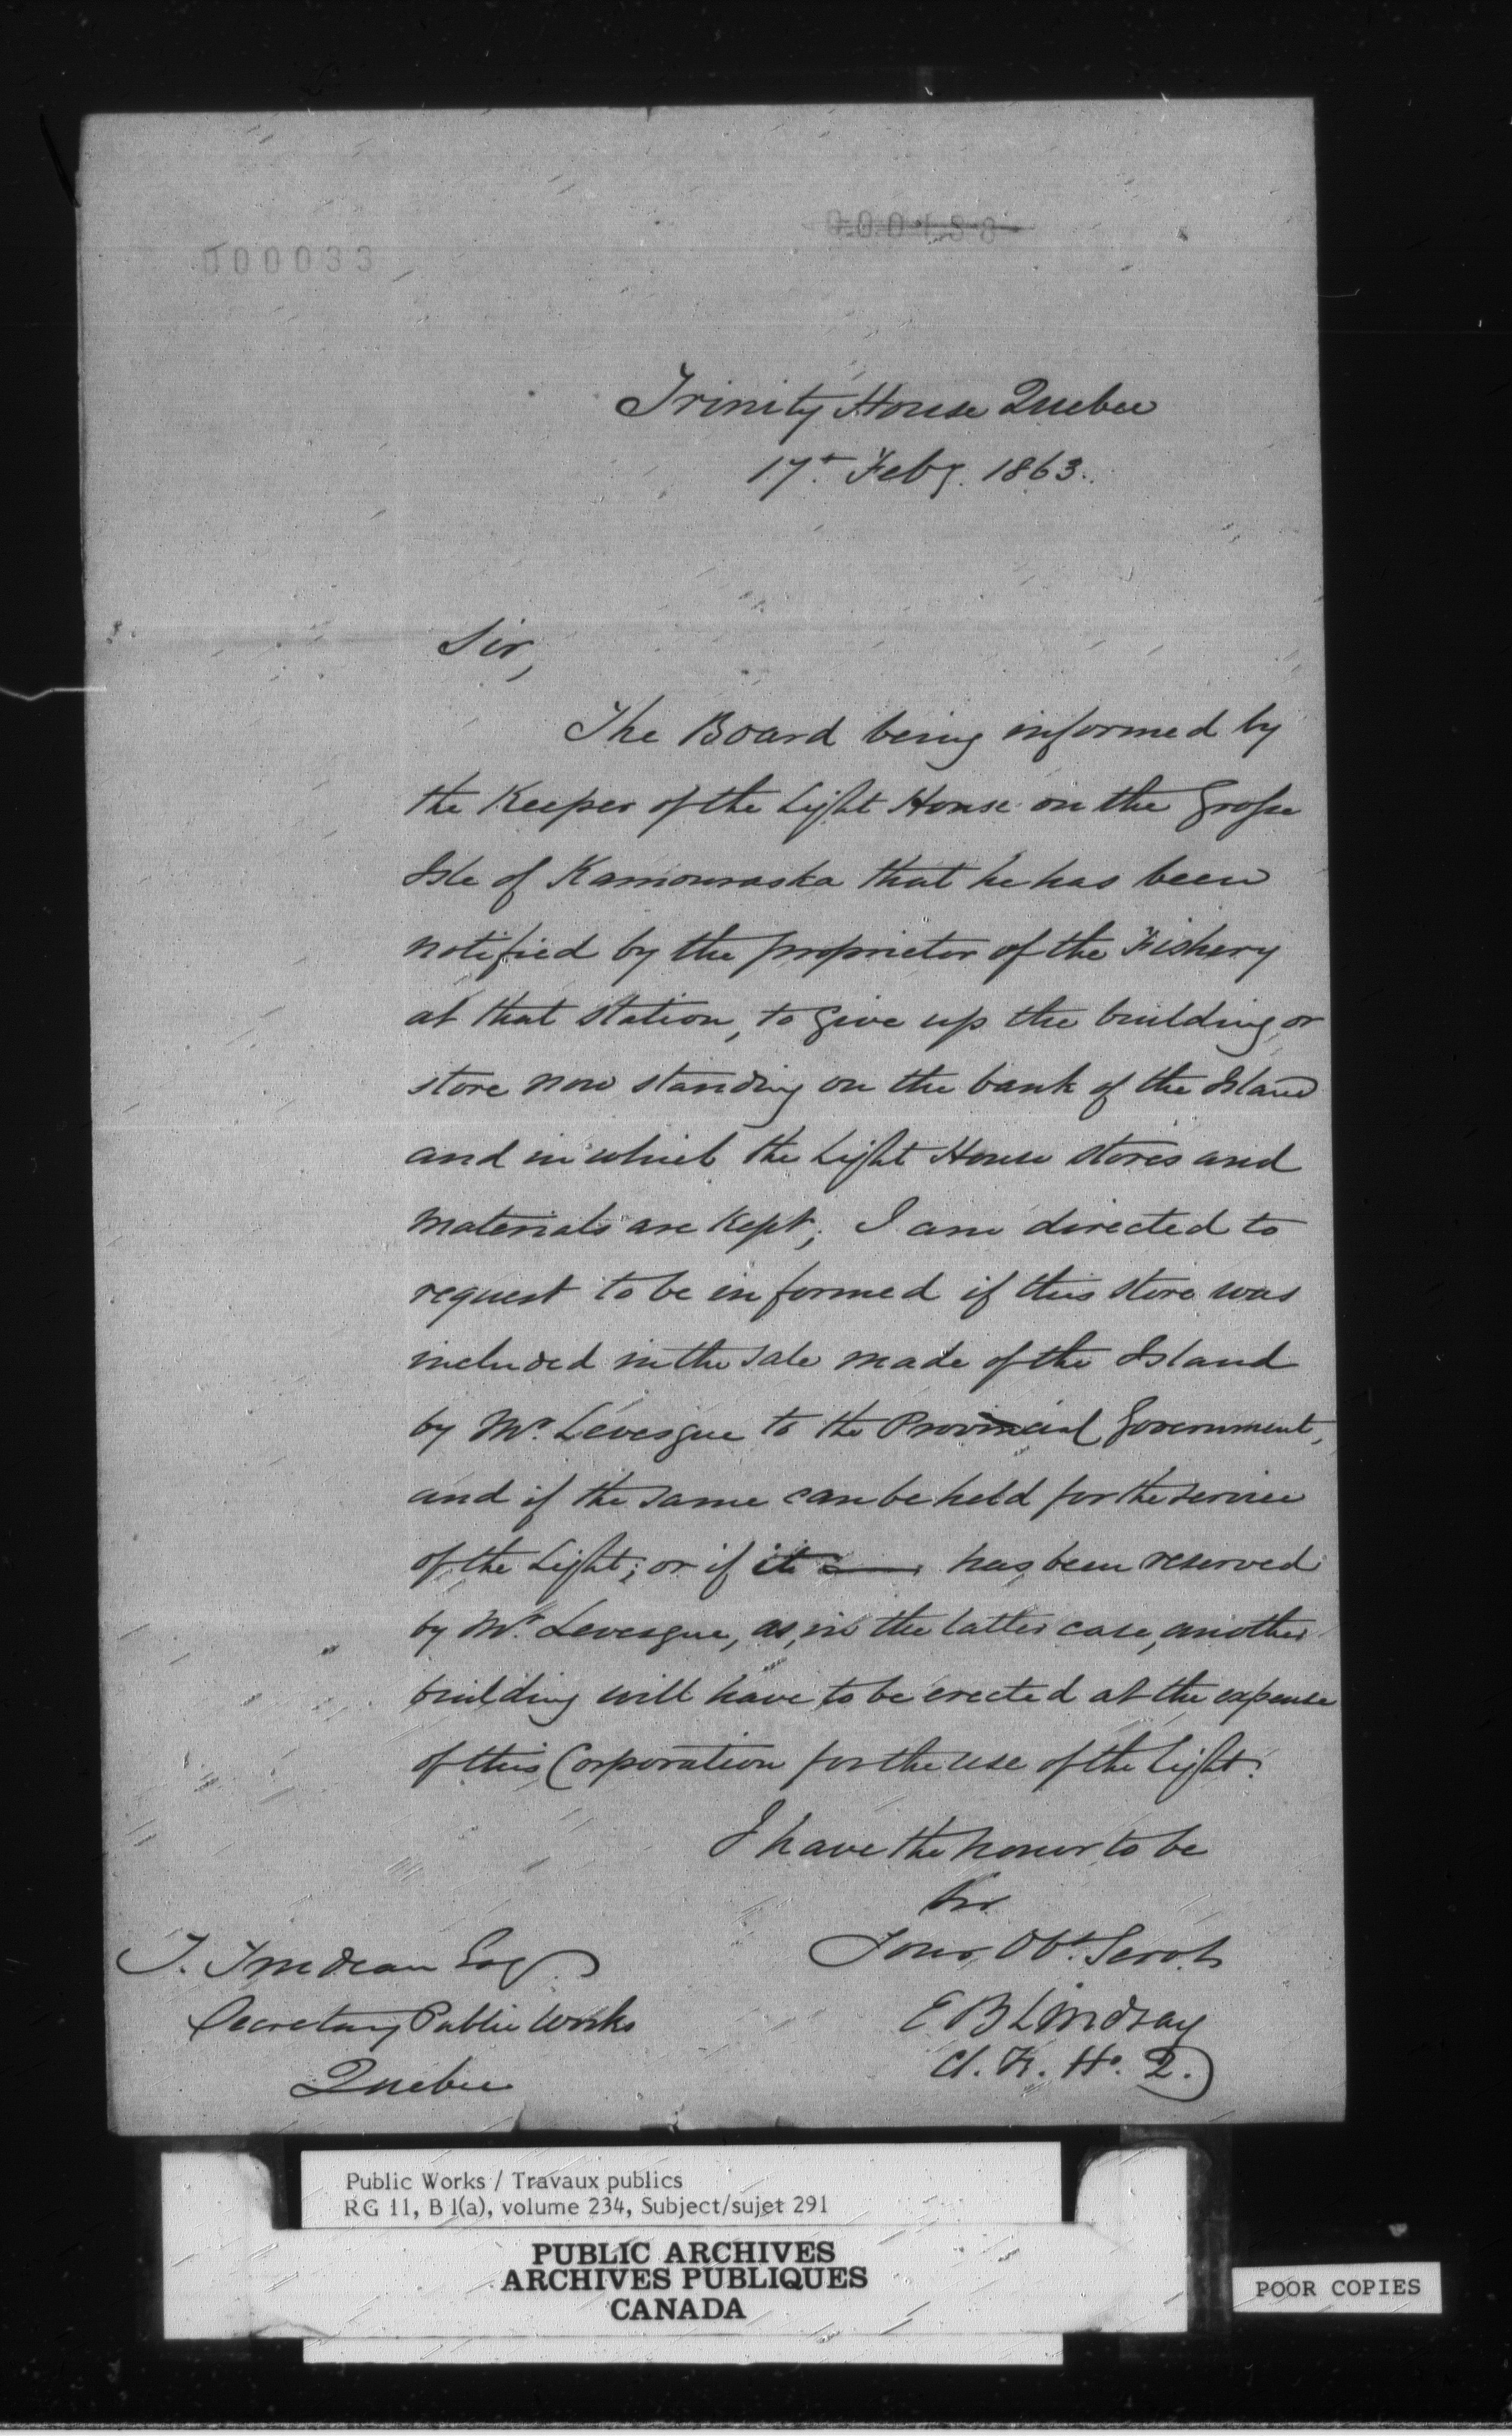 000033
000133
Trinity House Quebec
17th Feby. 1863.
Sir,
The Board being informed by
the Keeper of the Light House on the Grosse
Isle of Kamouraska that he has been
notified by the proprietor of the Fishery
at that station, to give up the building, or
store now standing on the bank of the Island
and in which the Light House stores and
materials are kept; I am directed to
request to be informed if this store was
included in the sale made of the Island
by Mr. Levesque to the Provincial Government,
and if the same can be held for the service
of the Light; or if it has been reserved
by Mr. Levesque, as, in the latter case, another
building will have to be erected at the expense
of this Corporation for the use of the Light.
I have the honor to be
Sir
Your Obt. Servt.
E B Lindsay
Cl. T. H. Q.
T. Trudeau Esq.
Secretary Public Works
Quebec
Public Works / Travaux publics
RG 11, B 1(a), volume 234, Subject/sujet 291
PUBLIC ARCHIVES
ARCHIVES PUBLIQUES
CANADA
POOR COPIES